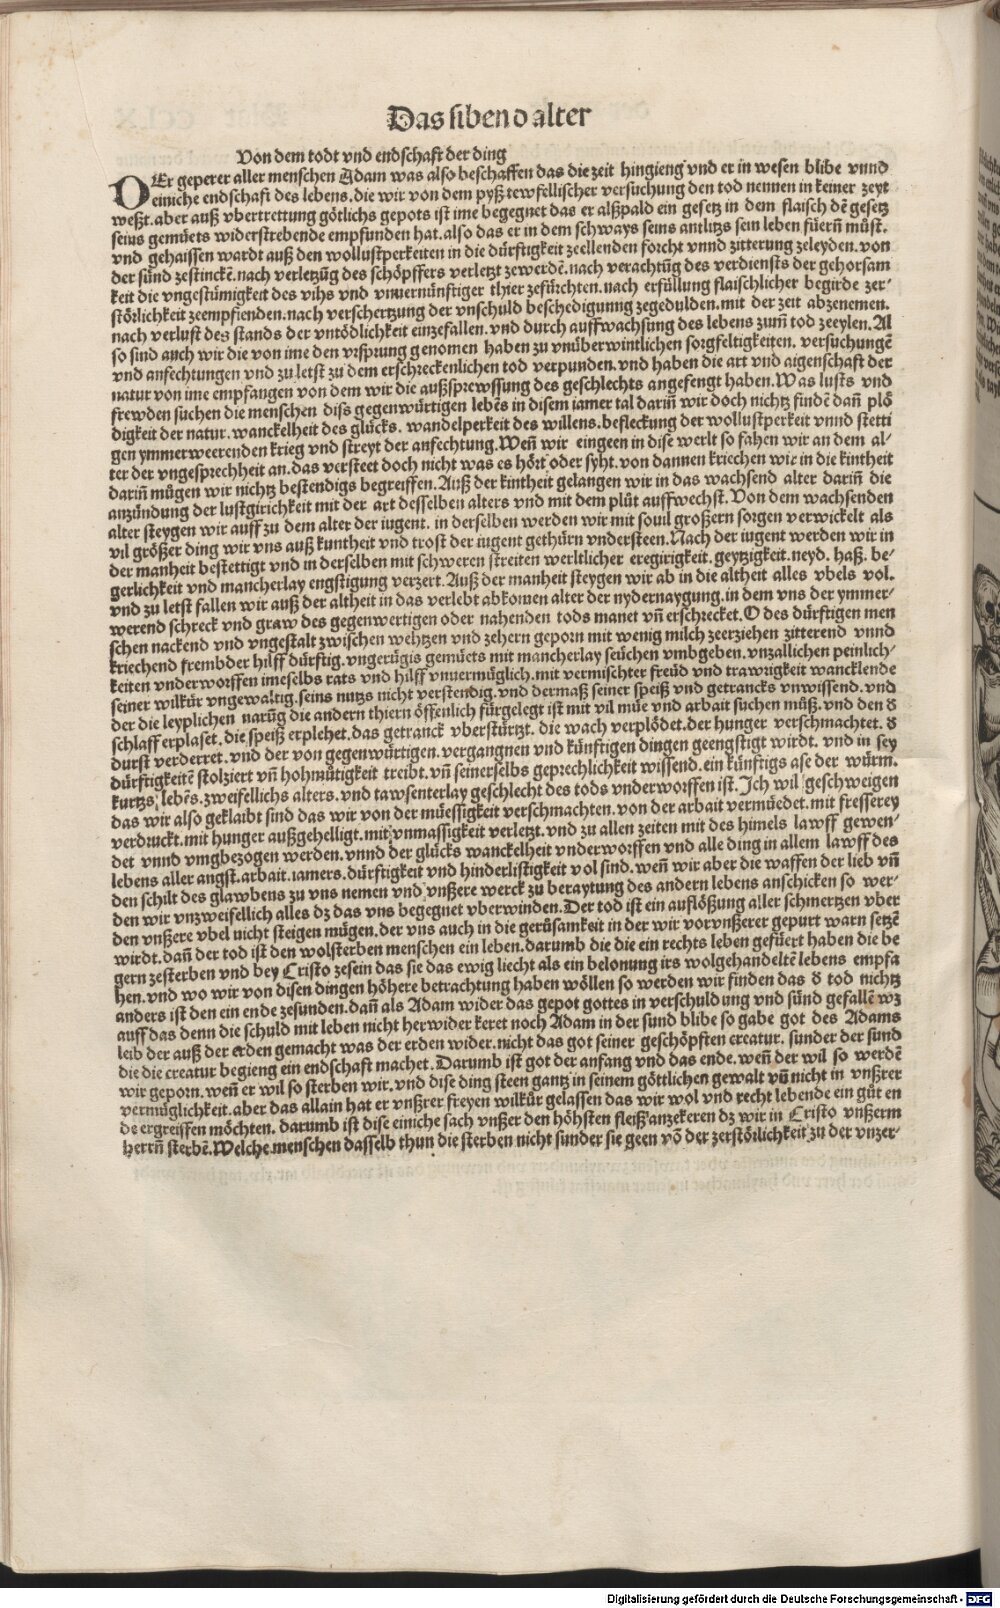 Das sibend alter
Von dem todt vnd endschaft der ding
DEr geperer aller menschen Adam was also beschaffen das die zeit hingieng vnd er in wesen blibe vnnd
einiche endschaft des lebens. die wir von dem pyß tewfellischer versuchung den tod nennen in keiner zeyt
weßt. aber auß vbertrettung götlichs gepots ist ime begegnet das er alßpald ein gesetz in dem flaisch dē gesetz
seins gemüets widerstrebende empfunden hat. also das er in dem schways seins antlitzs sein leben füern̄ můst.
vnd gehaissen wardt auß den wollustperkeiten in die dürftigkeit zeellenden forcht vnnd zitterung zeleyden. von
der sünd zestinckē. nach verletzūg des schöpffers verletzt zewerdē. nach verachtūg des verdiensts der gehorsam
keit die vngestümigkeit des vihs vnd vnuernünftiger thier zefürchten. nach erfüllung flaischlicher begirde zer-
störlichkeit zeempfienden. nach verschertzung der vnschuld beschedigunng zegedulden. mit der zeit abzenemen.
nach verlust des stands der vntödlichkeit einzefallen. vnd durch auffwachsung des lebens zum̄ tod zeeylen. Al
so sind auch wir die von ime den vrsprung genomen haben zu vnüberwintlichen sorgfeltigkeiten. versuchungē
vnd anfechtungen vnd zu letst zu dem erschreckenlichen tod verpunden. vnd haben die art vnd aigenschaft der
natur von ime empfangen von dem wir die außsprewssung des geschlechts angefengt haben. Was lusts vnd
frewden suchen die menschen diss gegenwürtigen lebēs in disem iamer tal darin̄ wir doch nichtz findē dan̄ plö
digkeit der natur. wanckelheit des glücks. wandelperkeit des willens. befleckung der wollustperkeit vnnd stetti
gen ymmerweerenden krieg vnd streyt der anfechtung. Wen̄ wir eingeen in dise werlt so fahen wir an dem al-
ter der vngesprechheit an. das versteet doch nicht was es hört oder syht. von dannen kriechen wir in die kintheit
darin̄ mügen wir nichtz bestendigs begreiffen. Auß der kintheit gelangen wir in das wachsend alter darin̄ die
anzündung der lustgirichkeit mit der art desselben alters vnd mit dem plůt auffwechst. Von dem wachsenden
alter steygen wir auff zu dem alter der iugent. in derselben werden wir mit souil großern sorgen verwickelt als
vil größer ding wir vns auß kuntheit vnd trost der iugent gethürn vndersteen. Nach der iugent werden wir in
der manheit bestettigt vnd in derselben mit schweren streiten werltlicher eregirigkeit. geytzigkeit. neyd. haß. be-
gerlichkeit vnd mancherlay engstigung verzert. Auß der manheit steygen wir ab in die altheit alles vbels vol.
vnd zu letst fallen wir auß der altheit in das verlebt abkomen alter der nydernaygung. in dem vns der ymmer-
werend schreck vnd graw des gegenwertigen oder nahenden tods manet vn̄ erschrecket. O des dürftigen men
schen nackend vnd vngestalt zwischen wehtzen vnd zehern geporn mit wenig milch zeerziehen zitterend vnnd
kriechend frembder hilff dürftig. vngerügis gemüets mit mancherlay seüchen vmbgeben. vnzallichen peinlich-
keiten vnderworffen imeselbs rats vnd hilff vnuermüglich. mit vermischter freüd vnd trawrigkeit wancklende
seiner wilkür vngewaltig. seins nutzs nicht verstendig. vnd dermaß seiner speiß vnd getrancks vnwissend. vnd
der die leyplichen narūg die andern thiern öffenlich fürgelegt ist mit vil müe vnd arbait suchen můß. vnd den d̄
schlaff erplaset. die speiß erplehet. das getranck vberstürtzt. die wach verplödet. der hunger verschmachtet. d̄
durst verderret. vnd der von gegenwürtigen. vergangnen vnd künftigen dingen geengstigt wirdt. vnd in sey
dürftigkeitē stolziert vn̄ hohmůtigkeit treibt. vn̄ seinerselbs geprechlichkeit wissend. ein künftigs ase der würm.
kurtzs lebēs. zweifellichs alters. vnd tawsenterlay geschlecht des tods vnderworffen ist. Ich wil geschweigen
das wir also geklaibt sind das wir von der müessigkeit verschmachten. von der arbait vermüedet. mit fresserey
verdruckt. mit hunger außgehelligt. mit vnmassigkeit verletzt. vnd zu allen zeiten mit des himels lawff gewen-
det vnnd vmgbezogen werden. vnnd der glücks wanckelheit vnderworffen vnd alle ding in allem lawff des
lebens aller angst. arbait. iamers. dürftigkeit vnd hinderlistigkeit vol sind. wen̄ wir aber die waffen der lieb vn̄
den schilt des glawbens zu vns nemen vnd vnßere werck zu beraytung des andern lebens anschicken so wer-
den wir vnzweifellich alles dz das vns begegnet vberwinden. Der tod ist ein auflößung aller schmertzen vber
den vnßere vbel nicht steigen mügen. der vns auch in die gerůsamkeit in der wir vor vnßerer gepurt warn setzē
wirdt. dan̄ der tod ist den wolsterben menschen ein leben. darumb die die ein rechts leben gefüert haben die be
gern zesterben vnd bey Cristo zesein das sie das ewig liecht als ein belonung irs wolgehandeltē lebens empfa
hen. vnd wo wir von disen dingen höhere betrachtung haben wöllen so werden wir finden das d̄ tod nichtz
anders ist den ein ende zesunden. dan̄ als Adam wider das gepot gottes in verschuldung vnd sünd gefallē wz
auff das denn die schuld mit leben nicht herwider keret noch Adam in der sund blibe so gabe got des Adams
leib der auß der erden gemacht was der erden wider. nicht das got seiner geschöpften creatur. sunder der sund
die die creatur begieng ein endschaft machet. Darumb ist got der anfang vnd das ende. wen̄ der wil so werdē
wir geporn. wen̄ er wil so sterben wir. vnd dise ding steen gantz in seinem göttlichen gewalt vn̄ nicht in vnßrer
vermüglichkeit. aber das allain hat er vnßrer freyen wilkür gelassen das wir wol vnd recht lebende ein gůt en
de ergreiffen möchten. darumb ist dise einiche sach vnßer den höhsten fleiß anzekeren dz wir in Cristo vnßerm
herrn̄ sterbē. Welche menschen dasselb thun die sterben nicht sunder sie geen vō der zerstörlichkeit zu der vnzer-
Digitalisierung gefördert durch die Deutsche Forschungsgemeinschaft - DFG